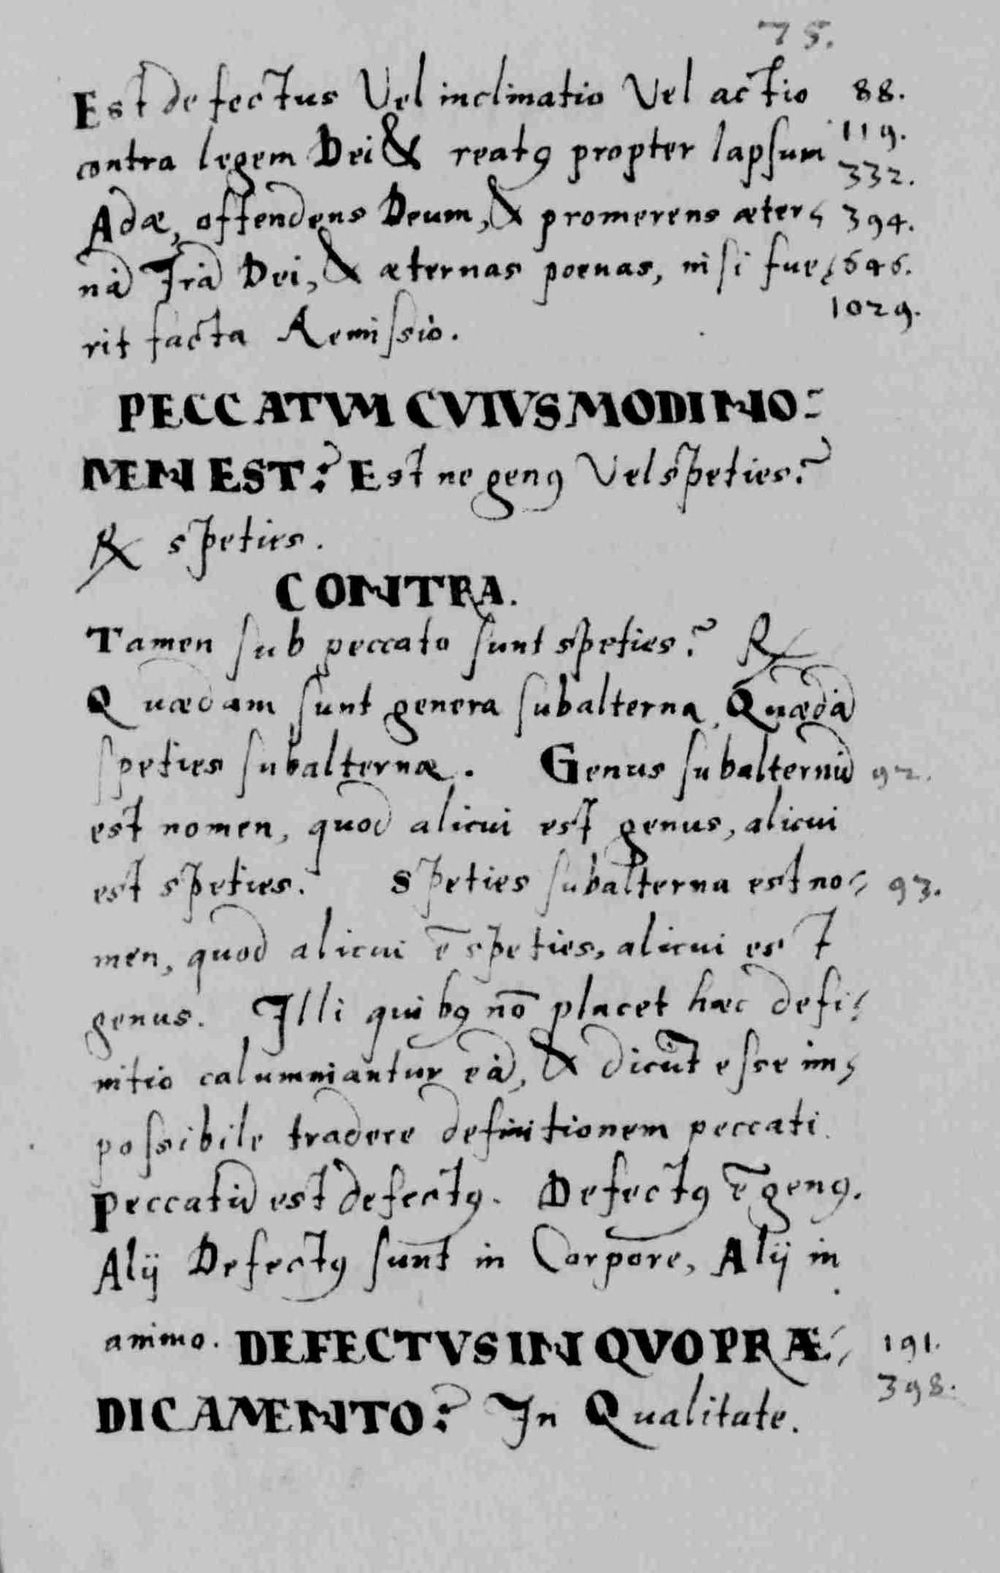 75.
Est defectus Vel inclinatio Vel actio 88.
contra legem Dei & reatꝰ propter lapsum 119.
332.
Adæ, offendens Deum, & promerens æter⸗ 394.
nā Irā Dei, & æternas poenas, nisi fue⸗ 646.
1029.
rit facta Remissio.
PECCATVM CVIVSMODI NO⸗
MEN EST? Est ne genꝰ Vel speties?
℞ speties.
CONTRA.
Tamen sub peccato sunt speties? ℞
Quædam sunt genera subalterna, Quædā
speties subalternæ. Genus subalternū 92.
est nomen, quod alicui est genus, alicui
est speties. Speties subalterna est no⸗ 93.
men, quod alicui ē speties, alicui est
genus. Illi quibꝰ nō placet hæc defi⸗
nitio calumniantur eā, & dicūt esse im⸗
possibile tradere definitionem peccati.
Peccatū est defectꝰ. Defectꝰ ē genꝰ.
Alij Defectꝰ sunt in Corpore, Alij in
animo. DEFECTVS IN QVO PRÆ⸗ 191.
398.
DICAMENTO? In Qualitate.